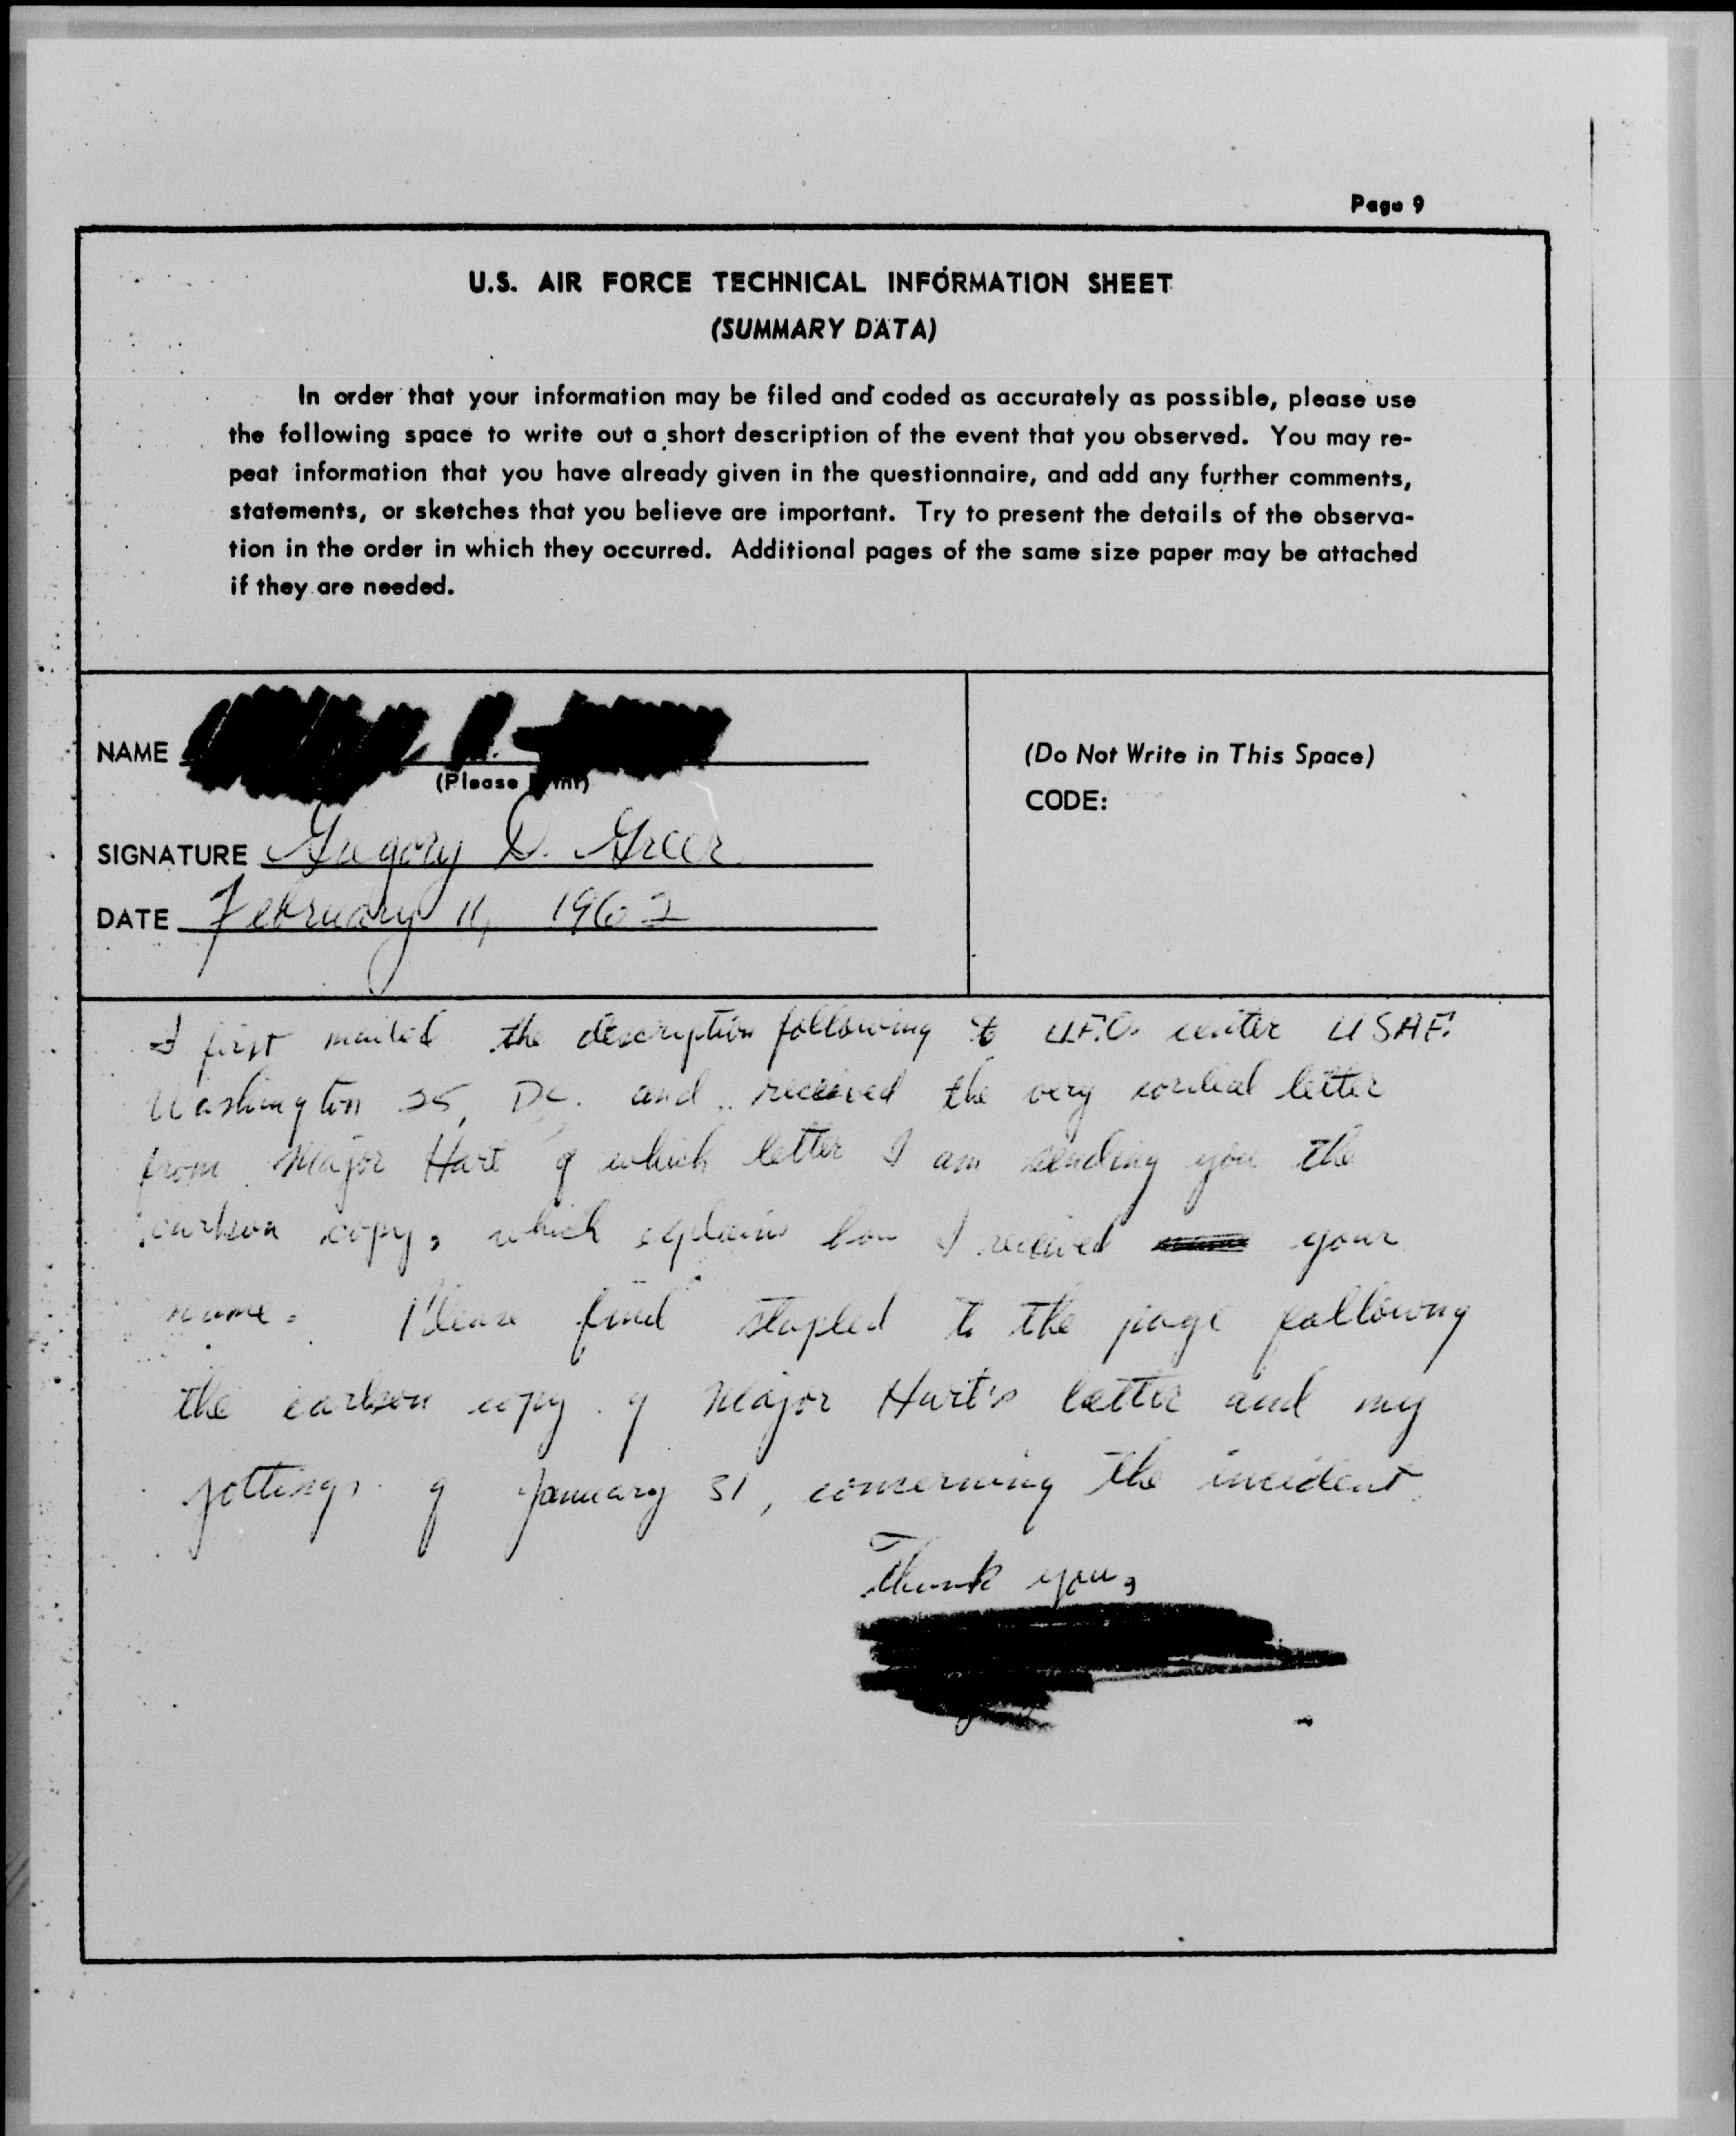 Page 9
U.S. AIR FORCE TECHNICAL INFORMATION SHEET
(SUMMARY DATA)
In order that your information may be filed and coded as accurately as possible, please use
the following space to write out a short description of the event that you observed. You may re-
peat information that you have already given in the questionnaire, and add any further comments,
statements, or sketches that you believe are important. Try to present the details of the observa-
tion in the order in which they occurred. Additional pages of the same size paper may be attached
if they are needed.
NAME
(Please Print)
SIGNATURE Gregory D. Greer
DATE February 11, 1962
(Do Not Write in This Space)
CODE:
I first mailed the description following to U.F.O. center USAF.
Washington 25, DC. and received the very cordial letter
from Major Hart of which letter I am sending you the
carbon copy, which explains how I received your
name. Please find stapled to the page following
the carbon copy of Major Hart's letter and my
jottings of January 31, concerning the incident.
Thank you,